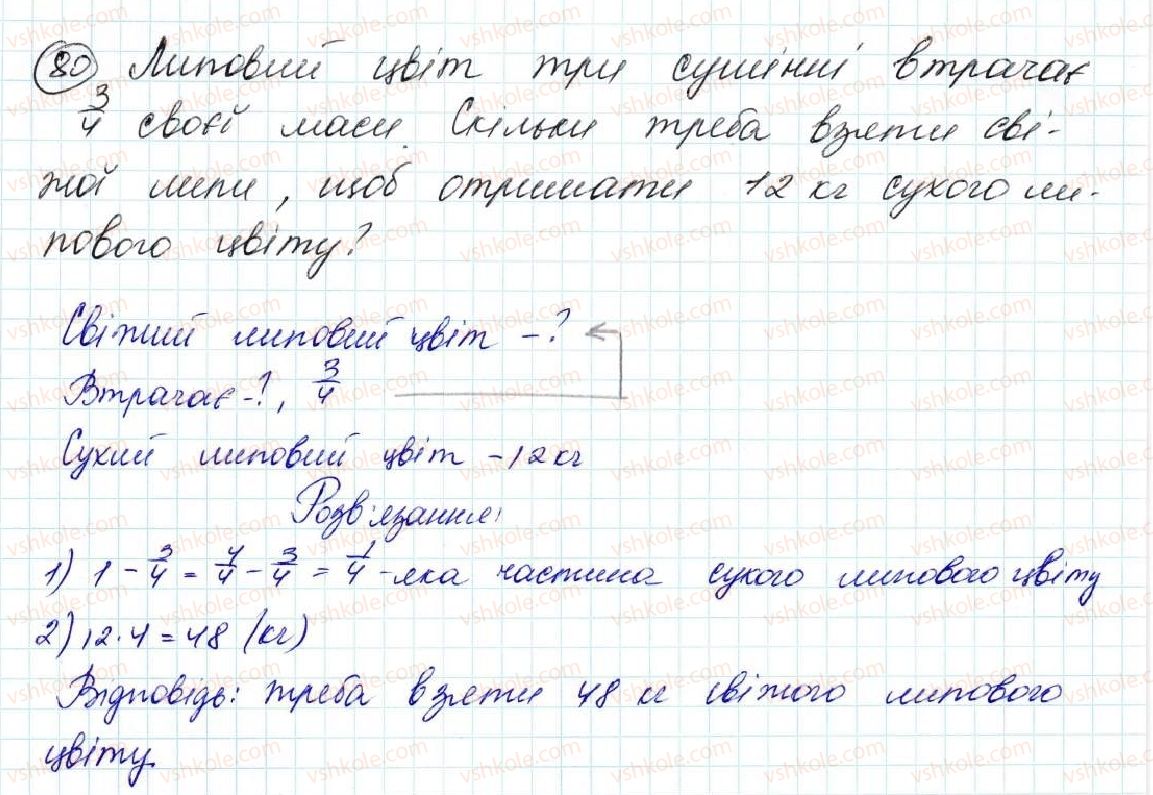 80 Липовий цвіт три сушінні втрачає
3/4 своєї маси. Скільки треба взяти сві-
жої липи, щоб отримати 12 кг сухого ли-
пового цвіту?
Свіжий липовий цвіт - ?
Втрачає - ?, 3/4
Сухий липовий цвіт - 12 кг
Розв'язання:
1) 1 - 3/4 = 4/4 - 3/4 = 1/4 - яка частина сухого липового цвіту
2) 12 · 4 = 48 (кг)
Відповідь: треба взяти 48 кг свіжого липового
цвіту.
vshkole.com